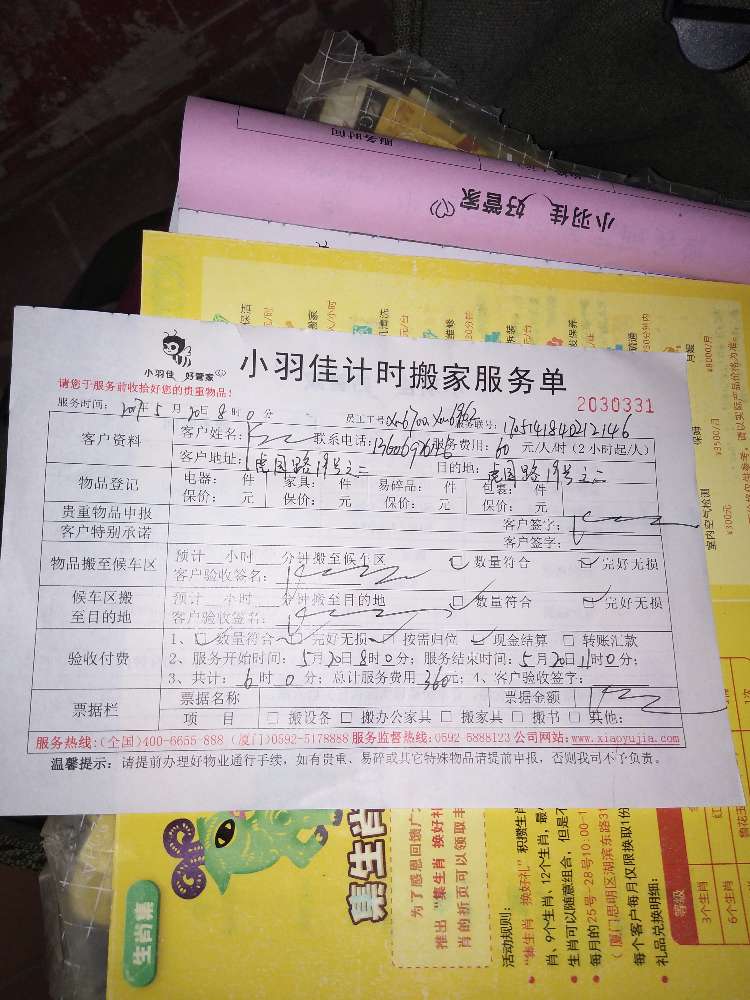 服务时间
小羽佳 好管家
小羽佳 好管家
小羽佳计时搬家服务单
请您于服务前收拾好您的贵重物品!
2030331
服务时间: 2017年5月20日8时0分 员工工号 服务联号: 1705141840212146
客户资料
客户姓名: 联系电话: 服务费用: 60 元/人/时(2小时起/人)
客户地址: 虎园路19号之二 目的地: 虎园路19号之二
物品登记
电器: 件 家具: 件 易碎品: 件 包裹: 件
保价: 元 保价: 元 保价: 元 保价: 元
贵重物品申报 客户签字:
客户特别承诺 客户签字:
物品搬至候车区
预计 小时 分钟搬至候车区 数量符合 完好无损
客户验收签名:
候车区搬至目的地
预计 小时 分钟搬至目的地 数量符合 完好无损
客户验收签名:
验收付费
1、数量符合 完好无损 按需归位 现金结算 转账汇款
2、服务开始时间: 5月20日8时0分; 服务结束时间: 5月20日11时0分;
3、共计: 6时0分; 总计服务费用 360元; 4、客户验收签字:
票据栏
票据名称 票据金额
项 目 搬设备 搬办公家具 搬家具 搬书 其他:
服务热线:(全国)400-6655-888 (厦门)0592-5178888 服务监督热线:0592-5888123 公司网站:www.xiaoyujia.com
温馨提示: 请提前办理好物业通行手续, 如有贵重、易碎或其它特殊物品请提前申报, 否则我司不予负责。
室内空气检测
¥300元
月嫂
¥8000/月
保姆
¥3500/月
生肖集
集生肖
为了感恩回馈广
推出“集生肖 换好礼
肖的折页可以领取丰
活动规则:
“集生肖 换好礼”积攒生肖
肖、9个生肖、12个生肖,最
生肖可以随意组合,但是不
每月的25号-28号10:00-1
(厦门思明区湖滨东路31
每个客户每月仅限换取1份
礼品兑换明细:
等级
3个生肖
6个生肖